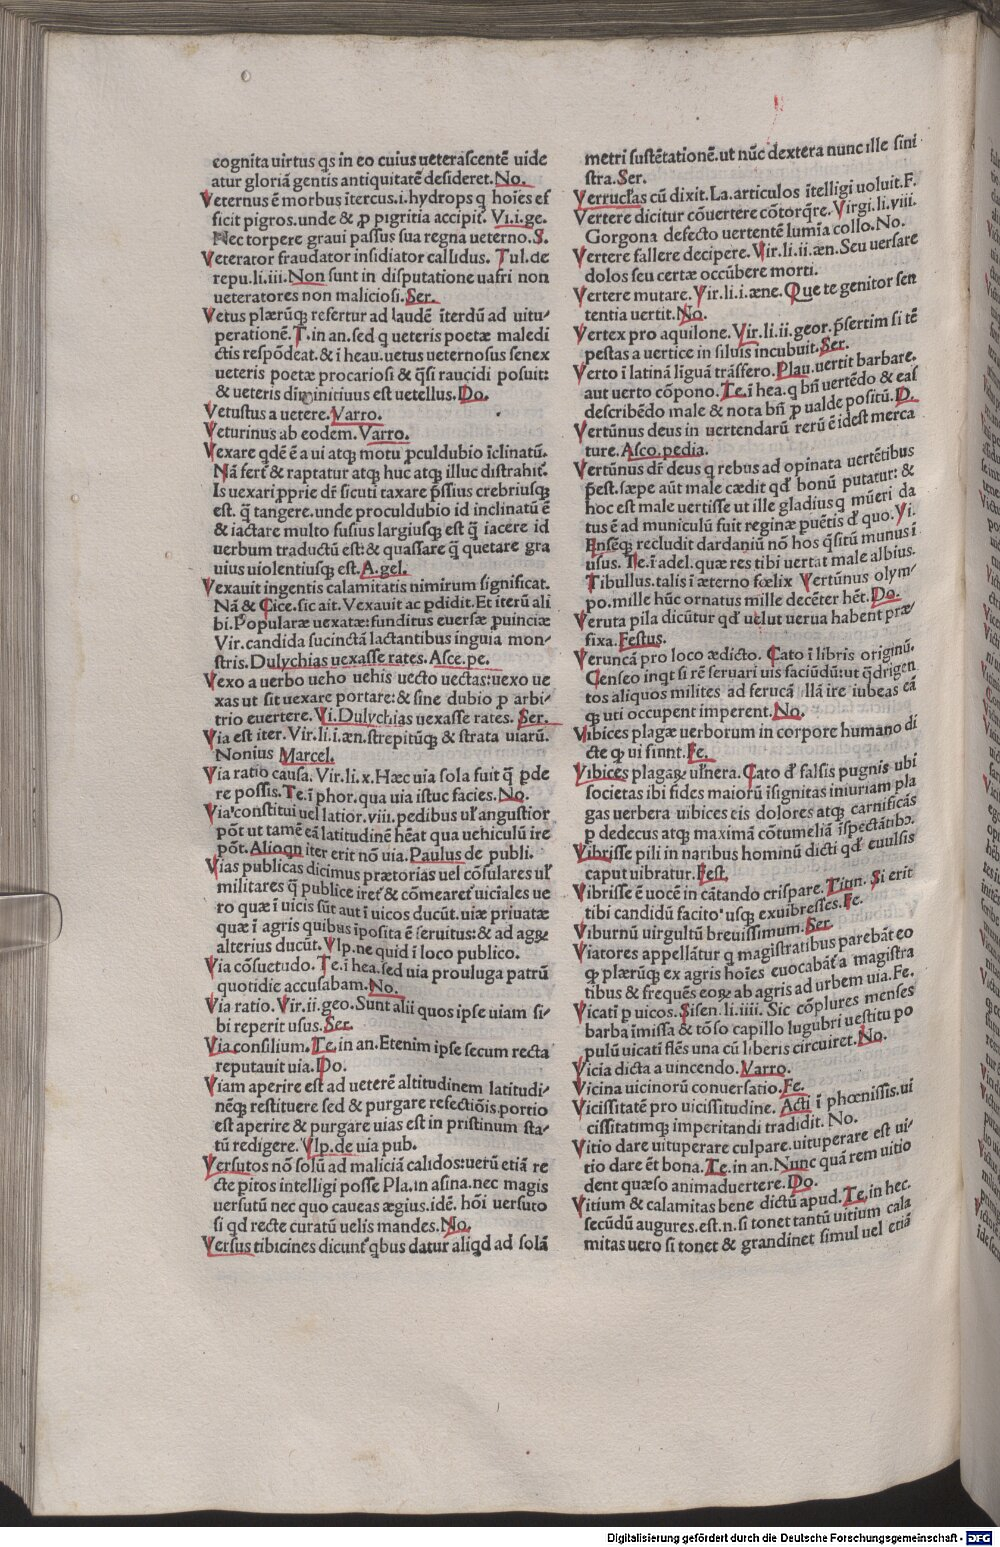 cognita uirtus qs in eo cuius ueterascentē uide
atur gloriā gentis antiquitatē desideret. No.
Veternus ē morbus ītercus.i.hydrops q hoīes ef
ficit pigros.unde & ꝓ pigritia accipit͛. Vi.i.ge.
Nec torpere graui passus sua regna ueterno.S.
Veterator fraudator insidiator callidus. Tul.de
repu.li.iii.Non sunt in disputatione uafri non
ueteratores non maliciosi.Ser.
Vetus plærūqꝫ refertur ad laudē īterdū ad uitu/
perationē.T.in an.sed q ueteris poetæ maledi
ctis respōdeat.& ī heau.uetus ueternosus senex
ueteris poetæ procariosi & q̄si raucidi posuit:
& ueteris diminitiuus est uetellus.Do.
Vetustus a uetere.Varro.
Veturinus ab eodem.Varro.
Vexare qdē ē a ui atqꝫ motu ꝓculdubio īclinatū.
Nā fert͛ & raptatur atqꝫ huc atqꝫ illuc distrahit͛.
Is uexari ꝓprie dr̄ sicuti taxare p̄ssius crebriusqꝫ
est. q̄ tangere.unde proculdubio id inclinatū ē
& iactare multo fusius largiusqꝫ est q̄ iacere id
uerbum traductū est:& quassare q̄ quetare gra
uius uiolentiusqꝫ est.A.gel.
Vexauit ingentis calamitatis nimirum significat.
Nā & Cice.sic ait.Vexauit ac ꝑdidit.Et iterū ali
bi.Popularæ uexatæ:funditus euersæ ꝓuinciæ
Vir.candida succinctā lactantibus inguia mon/
stris.Dulychias uexasse rates.Asce.pe.
Vexo a uerbo ueho uehis uecto uectas:uexo ue
xas ut sit uexare portare:& sine dubio ꝑ arbi/
trio euertere.Vi.Dulychias uexasse rates. Ser.
Via est iter.Vir.li.i.æn.strepitūqꝫ & strata uiarū.
Nonius Marcel.
Via ratio causa.Vir.li.x.Hæc uia sola fuit q̄ ꝑde
re possis.Te.ī phor.qua uia istuc facies.No.
Via cōstitui uel latior.viii.pedibus ul͛ angustior
pōt ut tamē eā latitudinē hēat qua uehiculū ire
pōt.Alioqn iter erit nō uia.Paulus de publi.
Vias publicas dicimus prætorias uel cōsulares ul͛
militares q̄ publice iret͛ & cōmearet͛ uiciales ue
ro quæ ī uicis sūt aut ī uicos ducūt.uiæ priuatæ
quæ ī agris quibus īposita ē seruitus:& ad agꝝ
alterius ducūt.Vlp.ne quid ī loco publico.
Via cōsuetudo.Te.ī hea.sed uia prouluga patrū
quotidie accusabam.No.
Via ratio.Vir.ii.geo.Sunt alii quos ipse uiam si/
bi reperit usus.Ser.
Via consilium.Te.in an.Etenim ipse secum recta
reputauit uia.Do.
Viam aperire est ad ueterē altitudinem latitudi/
nēqꝫ restituere sed & purgare refectiōis portio
est aperire & purgare uias est in pristinum sta/
tū redigere.Vlp.de uia pub.
Versutos nō solū ad maliciā calidos:uerū etiā re
cte pitos intelligi posse Pla.in asina.nec magis
uersutū nec quo caueas ægius.idē. hōi uersuto
si qd recte curatū uelis mandes.No.
Versus tibicines dicunt͛ qbus datur aliqd ad solā
metri sustētationē.ut nūc dextera nunc ille sini
stra.Ser.
Verruclas cū dixit.La.articulos ītelligi uoluit.F.
Vertere dicitur cōuertere cōtorq̄re.Virgi.li.viii.
Gorgona desecto uertentē lumīa collo.No.
Vertere fallere decipere.Vir.li.ii.æn.Seu uersare
dolos seu certæ occūbere morti.
Vertere mutare.Vir.li.i.æne.Que te genitor sen
tentia uertit.No.
Vertex pro aquilone.Vir.li.ii.geor.p̄sertim si tē
pestas a uertice in siluis incubuit.Ser.
Verto ī latinā liguā trāsfero.Plau.uertit barbare.
aut uerto cōpono.Te.ī hea.q bn̄ uertēdo & eas
describēdo male & nota bn̄ ꝓ ualde positū.D.
Vertūnus deus in uertendarū rerū ē idest merca
ture.Asco.pedia.
Vertūnus dr̄ deus q rebus ad opinata uertētibus
p̄est.sæpe aūt male cædit qd bonū putatur: &
hoc est male uertisse ut ille gladius q mūeri da
tus ē ad municulū fuit reginæ puētis d͛ quo.Vi.
Ensēqꝫ recludit dardaniū nō hos q̄sitū munus ī
usus. Te.ī adel.quæ res tibi uertat male albius.
Tibullus.talis ī æterno fœlix Vertūnus olym/
po.mille hūc ornatus mille decēter hēt.Do.
Veruta pila dicūtur qd uelut uerua habent præ/
fixa.Festus.
Veruncā pro loco ædicto. Cato ī libris originū.
Censeo inqt si rē seruari uis faciūdū:ut q̄drigen
tos aliquos milites ad ferucā illā ire iubeas eā
qꝫ uti occupent imperent.No.
Vibices plagæ uerborum in corpore humano di
cte qꝫ ui fiunt.Fe.
Vibices plagaꝝ ul͛nera.Cato d͛ falsis pugnis ubi
societas ibi fides maiorū īsignitas iniuriam pla
gas uerbera uibices eis dolores atqꝫ carnificās
ꝑ dedecus atqꝫ maximā cōtumeliā īspectātibꝫ.
Vibrisse pili in naribus hominū dicti qd euulsis
caput uibratur.Fest.
Vibrisse ē uocē in cātando crispare.Titin. Si erit
tibi candidū facito usqꝫ exuibresses.Fe.
Viburnū uirgultū breuissimum.Ser.
Viatores appellātur q magistratibus parebāt eo
qꝫ plærūqꝫ ex agris hoīes euocabāt͛ a magistra
tibus & frequēs eoꝝ ab agris ad urbem uia.Fe.
Vicati ꝑ uicos.Sisen.li.iiii. Sic cōplures menses
barba īmissa & tōso capillo lugubri uestitu po
pulū uicati flēs una cū liberis circuiret.No.
Vicia dicta a uincendo.Varro.
Vicina uicinorū conuersatio.Fe.
Vicissitatē pro uicissitudine. Acti ī phœnissis.ui
cissitatimqꝫ imperitandi tradidit.No.
Vitio dare uituperare culpare.uituperare est ui/
tio dare ēt bona.Te.in an.Nunc quā rem uitio
dent quæso animaduertere.Do.
Vitium & calamitas bene dictū apud.Te.in hec.
secūdū augures.est.n.si tonet tantū uitium cala
mitas uero si tonet & grandinet simul uel etiā
Digitalisierung gefördert durch die Deutsche Forschungsgemeinschaft - DFG